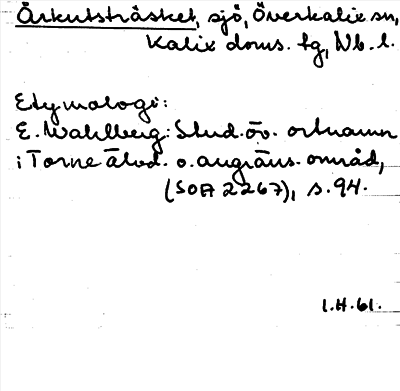 Örkutsträsket, sjö, Överkalix sn,
Kalix doms. tg, Nb. l.
Etymologi:
E. Wahlberg: Stud. öv. ortnamn
i Torne älvd. o. angräns. områd,
(SOA 2267), s. 94.
I.H. 61.